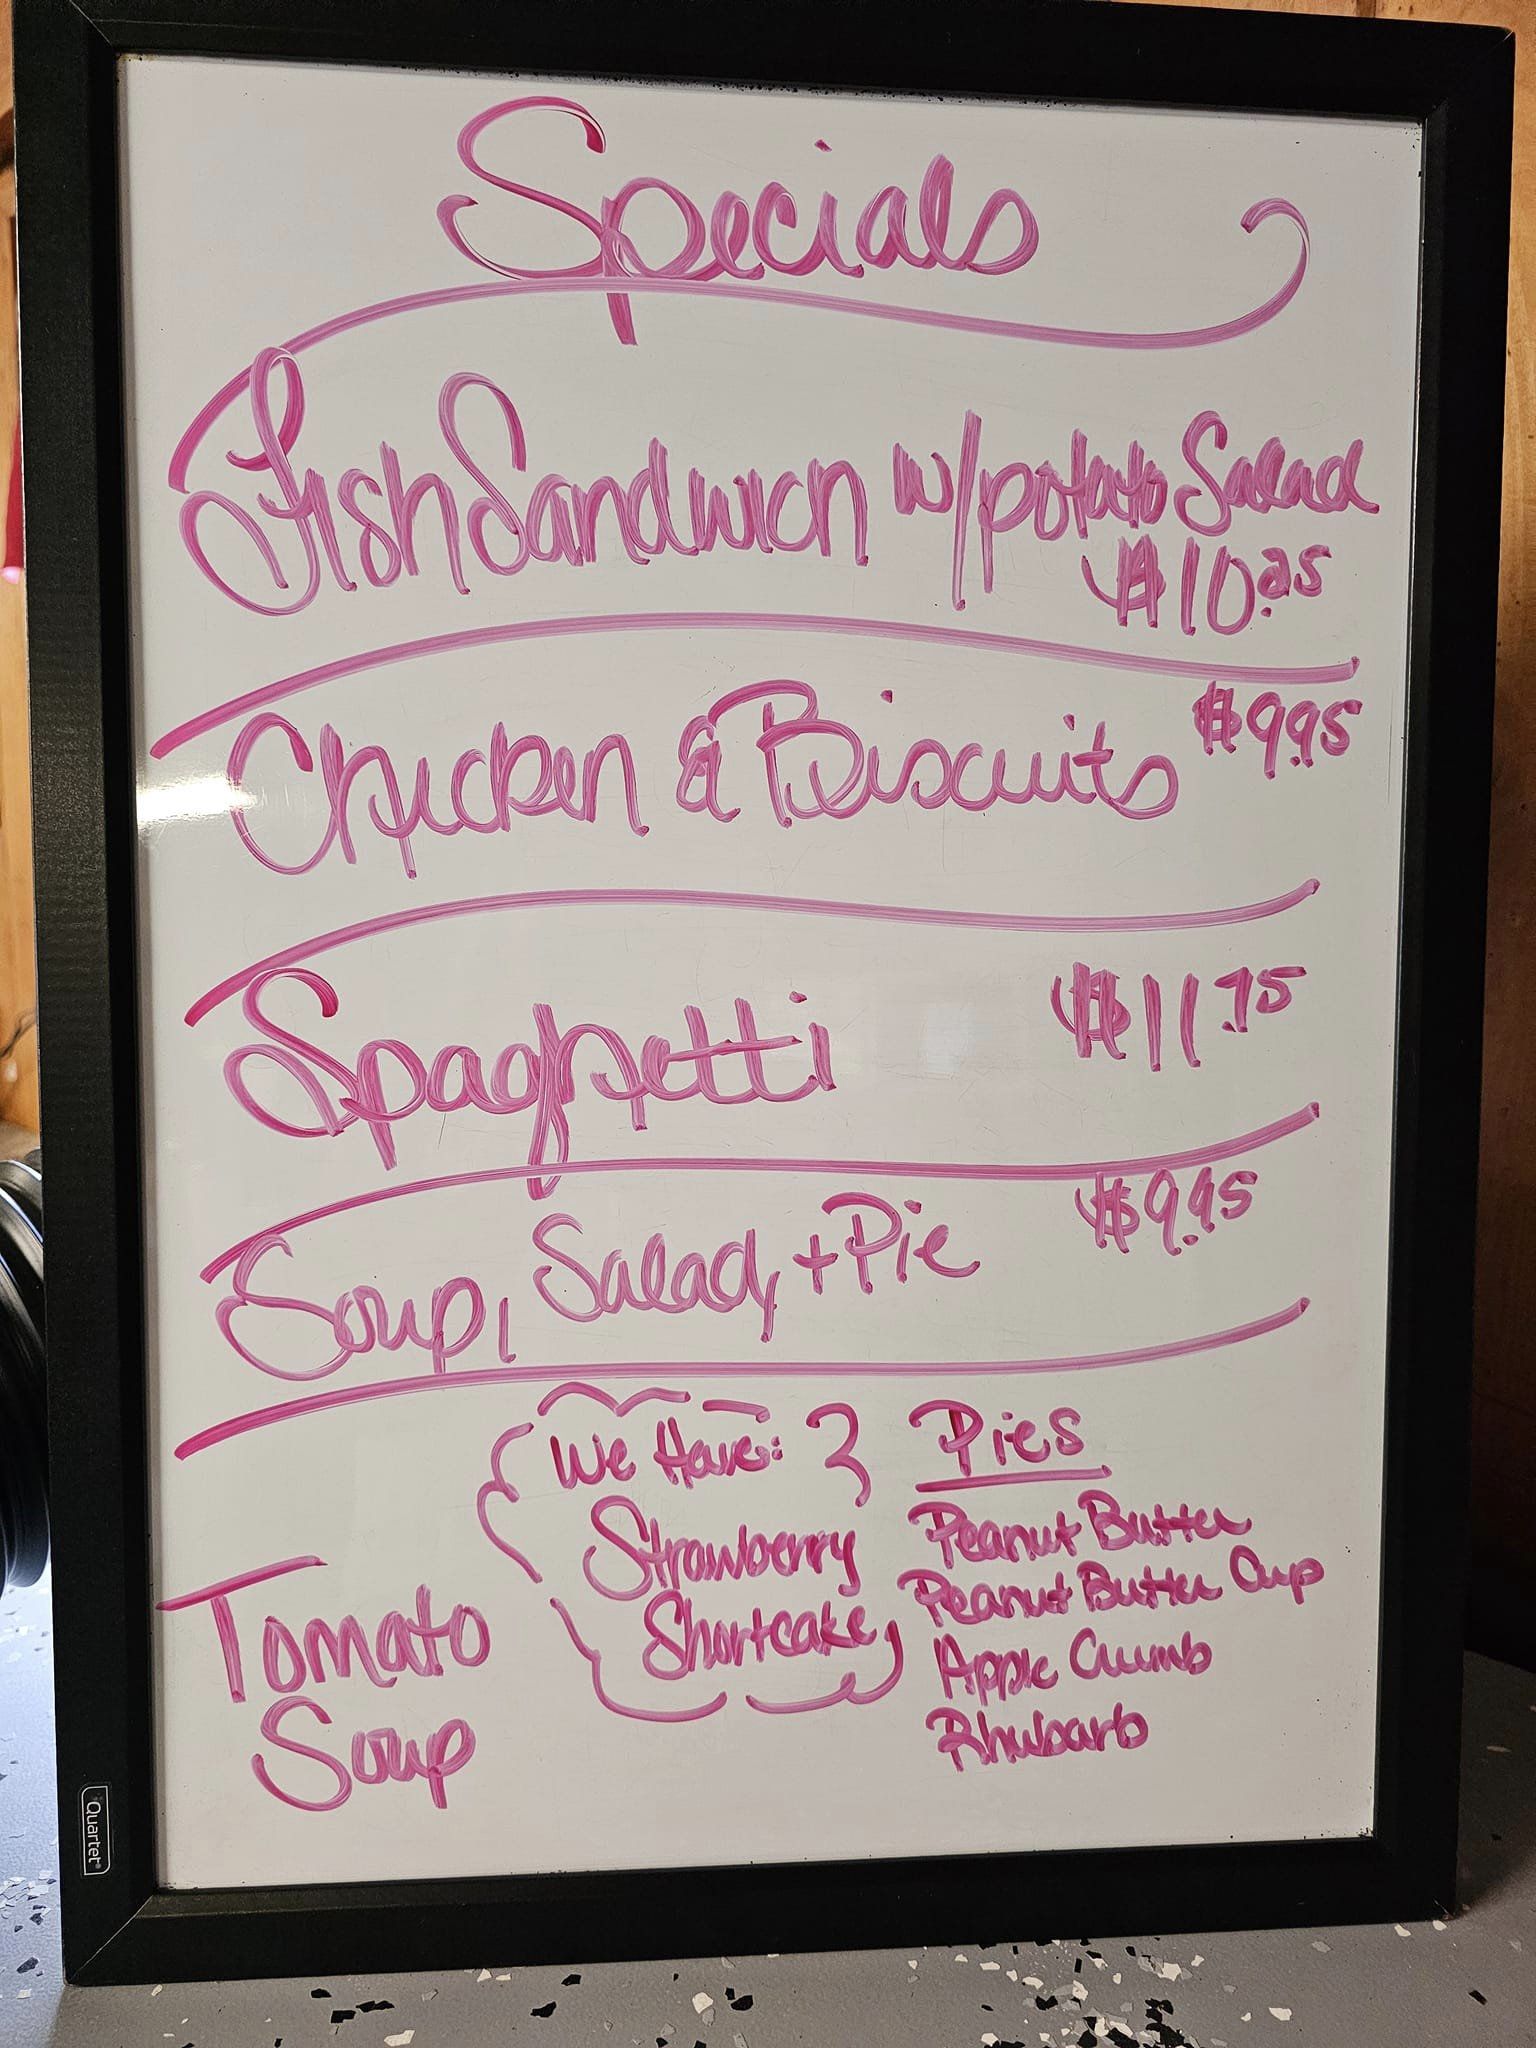 Specials
Fish Sandwich w/potato Salad
$10.25
Chicken & Biscuits $9.95
Spaghetti $11.75
Soup, Salad, + Pie $9.95
We Have:
Strawberry
Shortcake
Tomato
Soup
Pies
Peanut Butter
Peanut Butter Cup
Apple Crumb
Rhubarb
Quartet®